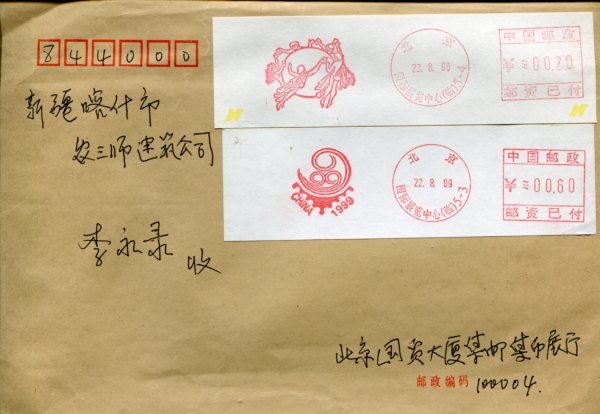 844000
新疆喀什市
农三师建筑公司
李永录 收
北京
22.8.99
国际展览中心(临)5-4
中国邮政
¥=00.20
邮资已付
北京
22.8.99
国际展览中心(临)5-3
中国邮政
¥=00.60
邮资已付
CHINA 1999
北京国贸大厦集邮集币展厅
邮政编码 100004.